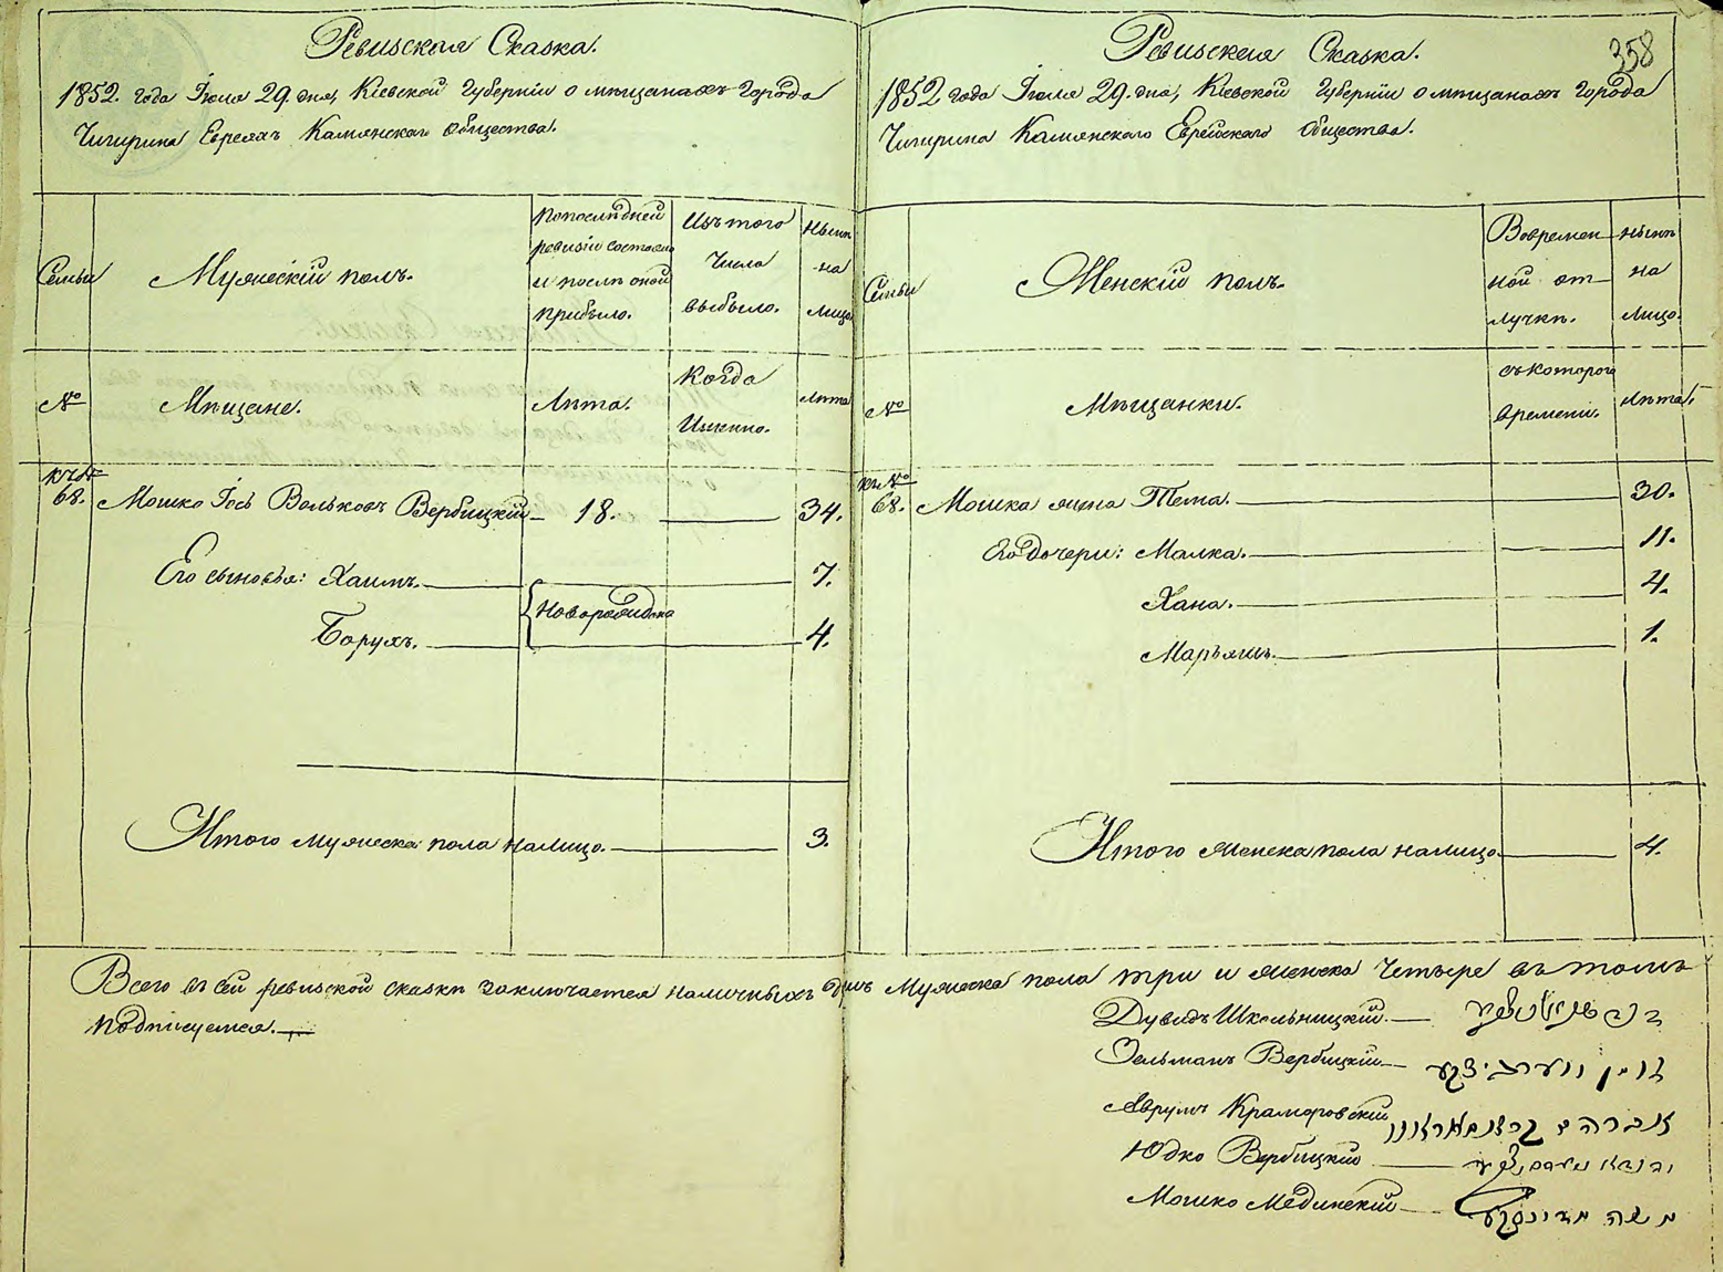 Ревизская Сказка.
1852. года Іюля 29. дня, Кіевской Губерніи о мѣщанахъ города
Чигирина Евреяхъ Камянскаго общества.
Семьи
Мужескій полъ.
Попослѣдней
ревизіи состояло
и послѣ оной
прибыло.
Изъ того
Числа
выбыло.
Нынѣ
на
лицо.
№
Мѣщане.
Лѣта.
Когда
Именно.
Лѣта
къ №
68.
Мошко Іось Вольковъ Вербицкій 18. 34.
Его сыновья: Хаимъ. 7.
Новорожденые
Борухъ. 4.
Итого мужеска пола налицо. 3.
358
Ревизская Сказка.
1852 года Іюля 29. дня, Кіевской Губерніи о мѣщанахъ Города
Чигирина Камянскаго Еврейскаго Общества.
Семьи
Женскій полъ.
Вовремен
ной от
лучкѣ.
нынѣ
на
лицо.
№
Мѣщанки.
съкотораго
времени.
Лѣта.
къ №
68. Мошка жена Тема. 30.
Его дочери: Малка. 11.
Хана. 4.
Марьямъ. 1.
Итого женска пола налицо 4.
Всего въ сей ревизской сказкѣ заключается наличныхъ душъ Мужеска пола три и женска Четыре въ томъ
подписуемся.
Дувидъ Школьницкій.
Зельманъ Вербицкій
Аврумъ Краморовскій
אברהם
Юдко Вербицкій
Мошко Мединскій
משה